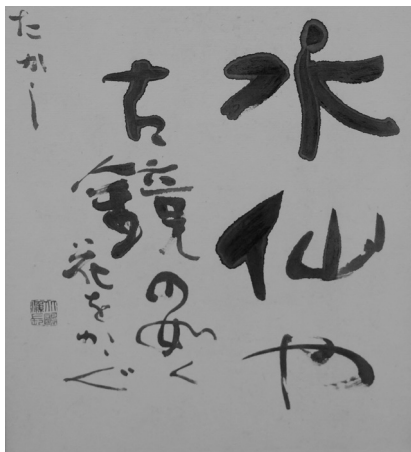 水仙や
古鏡の如く
花をかゝぐ
たかし